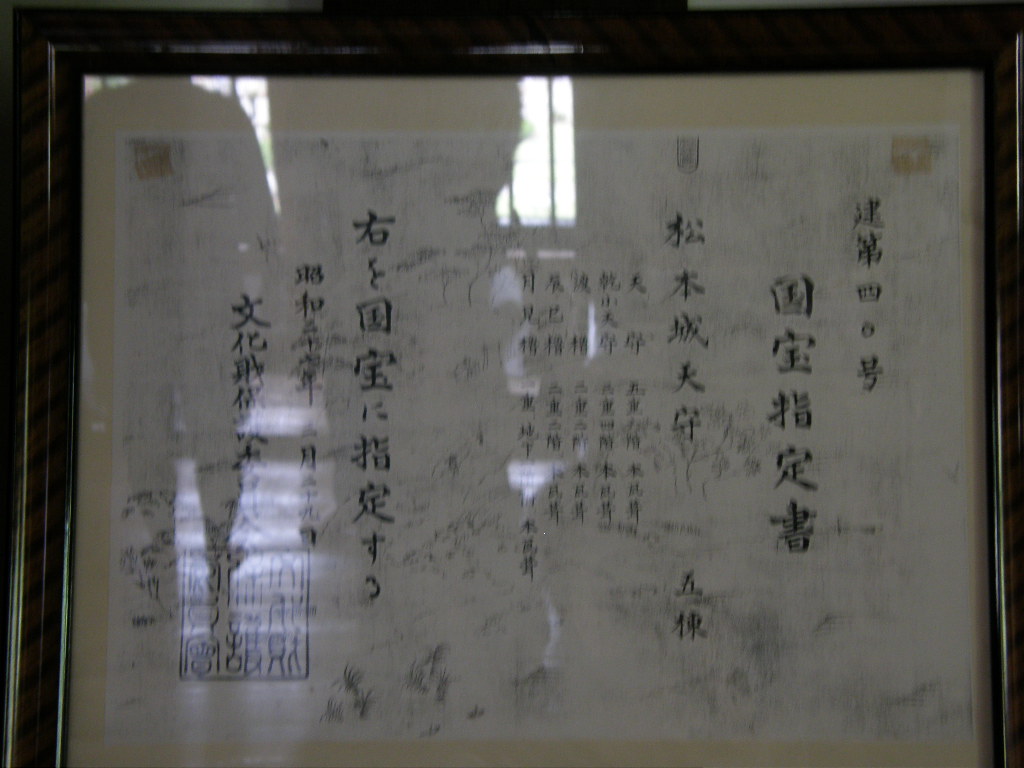 建第四〇号
国宝指定書
松本城天守 五棟
天守 五重六階 本瓦葺
乾小天守 三重四階 本瓦葺
渡櫓 二重二階 本瓦葺
辰巳櫓 二重二階 本瓦葺
月見櫓 一重 地下 本瓦葺
右を国宝に指定する
昭和 年 月二十九日
文化財保護委員会
文化財保護委員会